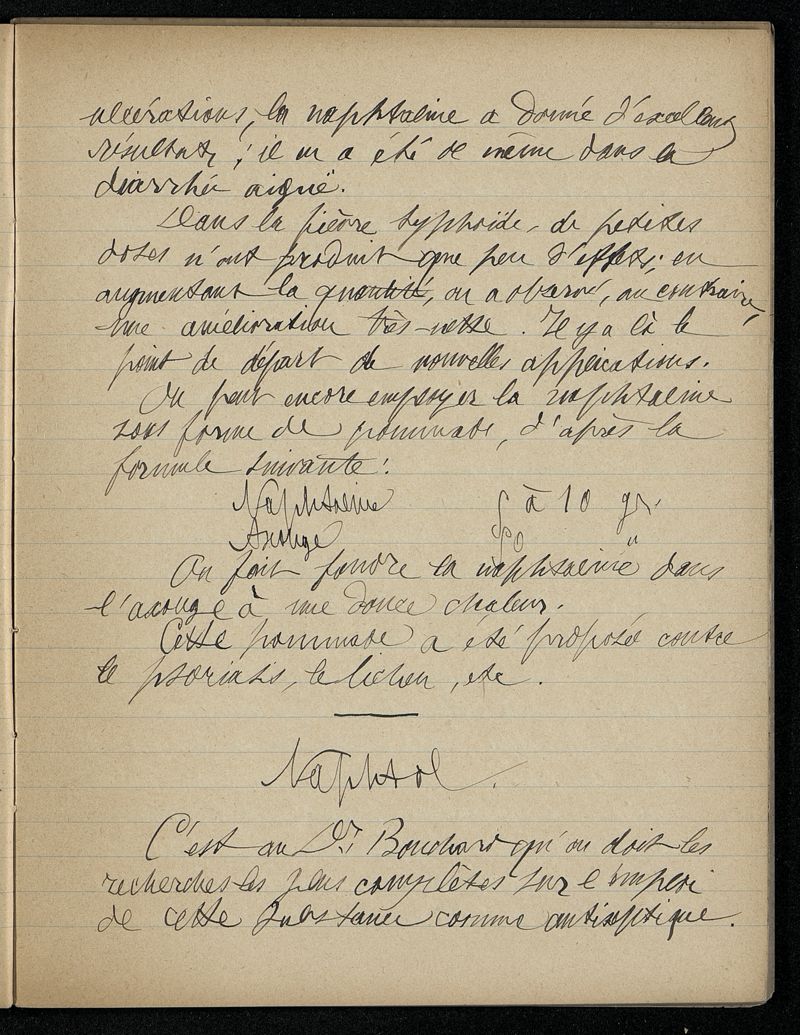 ulcérations, la naphtaline a donné d'excellents
résultats ; il en a été de même dans la
diarrhée aiguë.
Dans la fièvre typhoïde, de petites
doses n'ont produit que peu d'effets ; en
augmentant la quantité, on a observé, au contraire,
une amélioration très-nette. Il y a là le
point de départ de nouvelles applications.
On peut encore employer la naphtaline
sous forme de pommade, d'après la
formule suivante :
Naphtaline à 10 gr.
Axonge "
On fait fondre la naphtaline dans
l'axonge à une douce chaleur.
Cette pommade a été proposée contre
le psoriasis, le lichen, etc.
Naphtol.
C'est au Dr. Bouchard qu'on doit les
recherches les plus complètes sur l'emploi
de cette substance comme antiseptique.